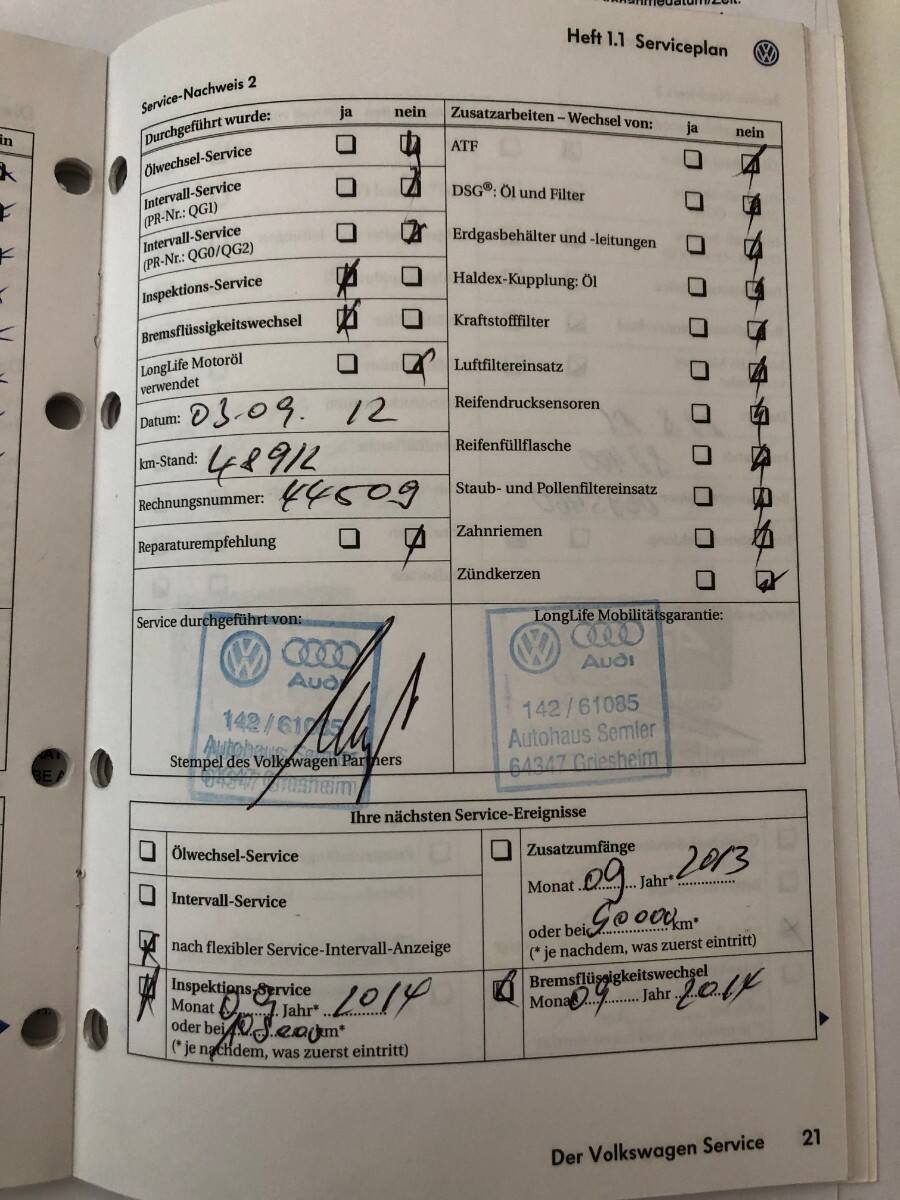 Heft 1.1 Serviceplan
Service-Nachweis 2
Durchgeführt wurde: ja nein
Ölwechsel-Service
Intervall-Service
(PR-Nr.: QG1)
Intervall-Service
(PR-Nr.: QG0/QG2)
Inspektions-Service
Bremsflüssigkeitswechsel
LongLife Motoröl
verwendet
Datum: 03.09. 12
km-Stand: 48912
Rechnungsnummer: 44509
Reparaturempfehlung
Zusatzarbeiten – Wechsel von: ja nein
ATF
DSG®: Öl und Filter
Erdgasbehälter und -leitungen
Haldex-Kupplung: Öl
Kraftstofffilter
Luftfiltereinsatz
Reifendrucksensoren
Reifenfüllflasche
Staub- und Pollenfiltereinsatz
Zahnriemen
Zündkerzen
Service durchgeführt von:
Audi
142 / 61085
Autohaus Semler
64347 Griesheim
Stempel des Volkswagen Partners
LongLife Mobilitätsgarantie:
Audi
142 / 61085
Autohaus Semler
64347 Griesheim
Ihre nächsten Service-Ereignisse
Ölwechsel-Service
Intervall-Service
nach flexibler Service-Intervall-Anzeige
Inspektions-Service
Monat 09 Jahr* 2014
oder bei km*
(* je nachdem, was zuerst eintritt)
Zusatzumfänge
Monat 09 Jahr* 2013
oder bei 90000 km*
(* je nachdem, was zuerst eintritt)
Bremsflüssigkeitswechsel
Monat 09 Jahr 2014
Der Volkswagen Service 21